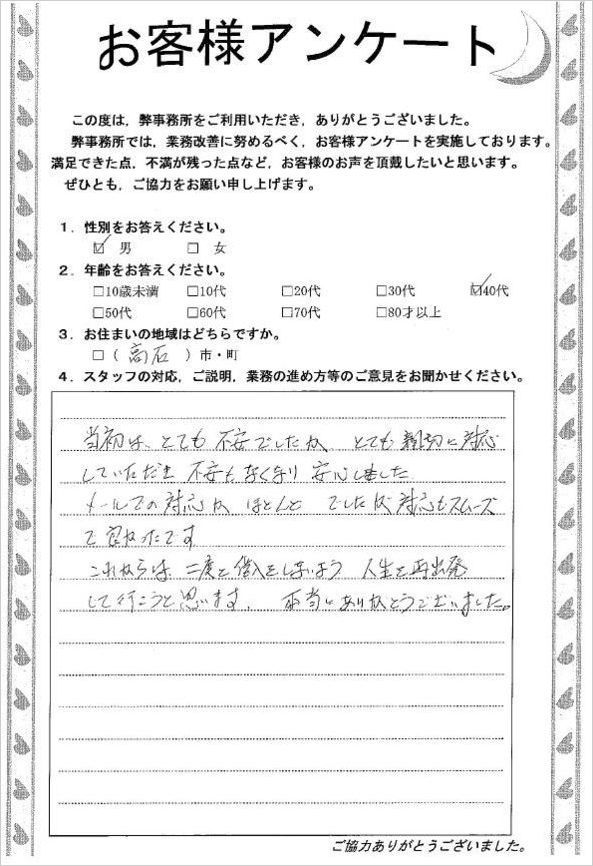 お客様アンケート
この度は，弊事務所をご利用いただき，ありがとうございました。
弊事務所では，業務改善に努めるべく，お客様アンケートを実施しております。
満足できた点，不満が残った点など，お客様のお声を頂戴したいと思います。
ぜひとも，ご協力をお願い申し上げます。
１．性別をお答えください。
☑ 男 □ 女
２．年齢をお答えください。
□10歳未満 □10代 □20代 □30代 ☑40代
□50代 □60代 □70代 □80才以上
３．お住まいの地域はどちらですか。
□（ 高石 ）市・町
４．スタッフの対応，ご説明，業務の進め方等のご意見をお聞かせください。
当初は、とても 不安でしたが、とても親切に対応
していただき 不安もなくなり 安心しました
メールでの対応が ほとんど でしたが 対応もスムーズ
で良かったです
これからは、二度と借入をしないよう 人生を再出発
して行こうと思います。 本当にありがとうございました。
ご協力ありがとうございました。